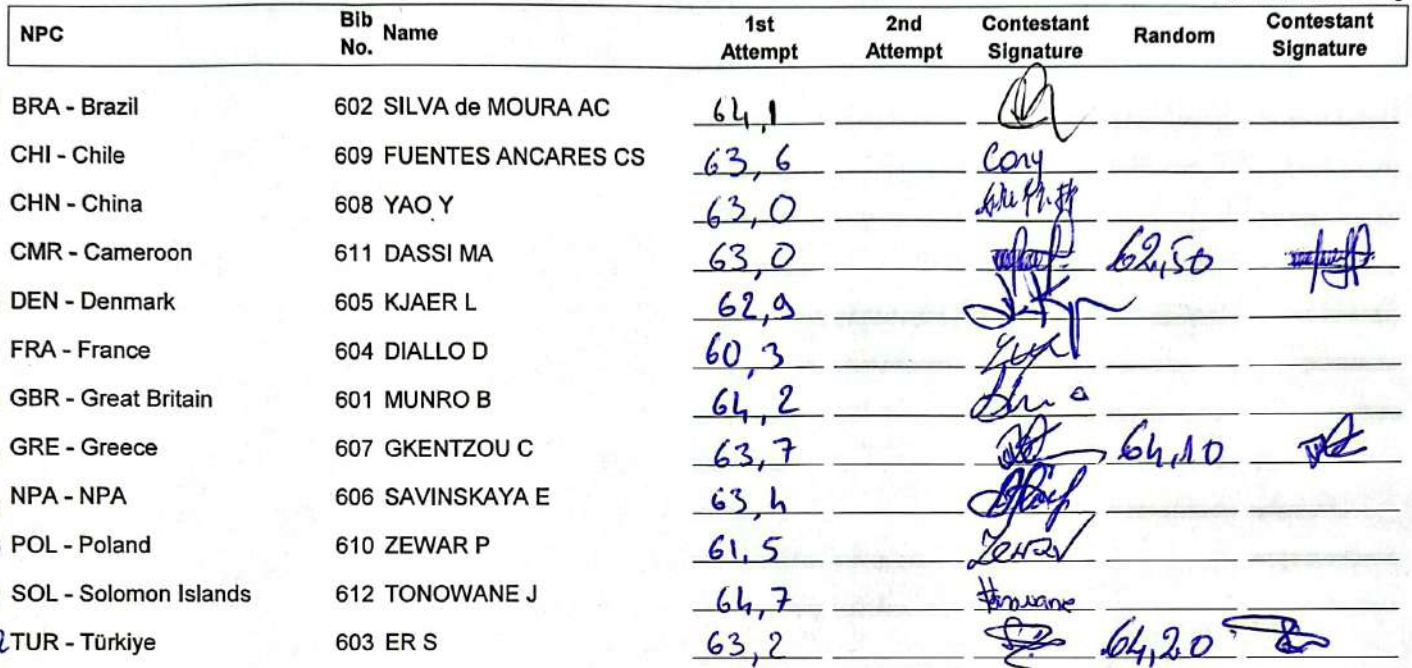 NPC Bib No. Name 1st Attempt 2nd Attempt Contestant Signature Random Contestant Signature
BRA - Brazil 602 SILVA de MOURA AC 64,1
CHI - Chile 609 FUENTES ANCARES CS 63,6 Cony
CHN - China 608 YAO Y 63,0
CMR - Cameroon 611 DASSI MA 63,0 62,50
DEN - Denmark 605 KJAER L 62,9
FRA - France 604 DIALLO D 60,3
GBR - Great Britain 601 MUNRO B 64,2
GRE - Greece 607 GKENTZOU C 63,7 64,10
NPA - NPA 606 SAVINSKAYA E 63,4
POL - Poland 610 ZEWAR P 61,5 Zewar
SOL - Solomon Islands 612 TONOWANE J 64,7
TUR - Türkiye 603 ER S 63,2 64,20